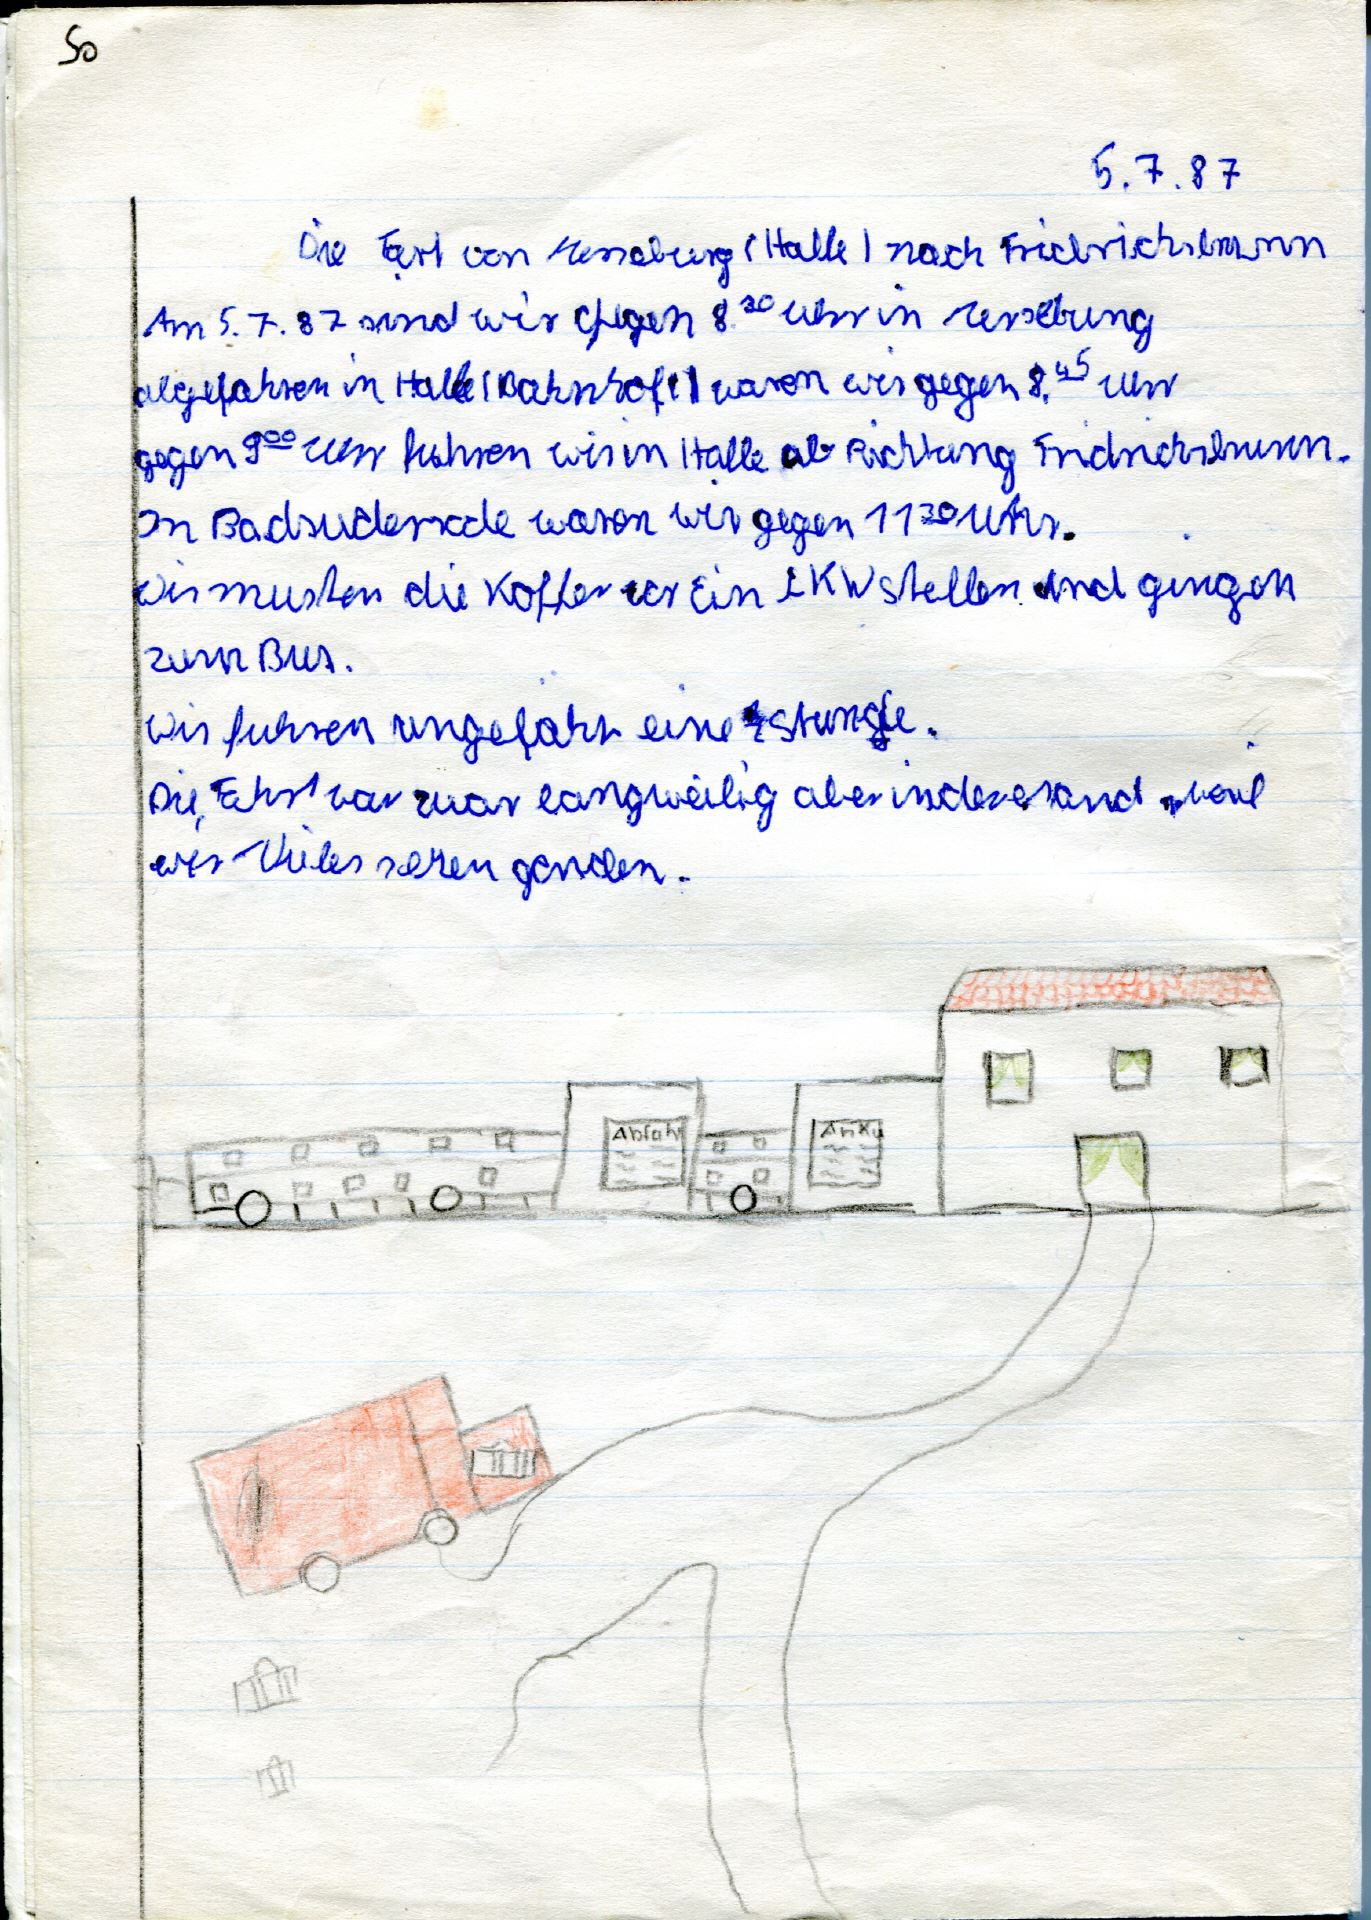 So
5.7.87
Die Fart von Merseburg (Halle) nach Fridrichsbrunn
Am 5.7.87 sind wir gegen 8.30 Uhr in Merseburg
abgefahren in Halle (Bahnhof) waren wir gegen 8.45 Uhr
gegen 900 Uhr fuhren wir in Halle ab Richtung Fridrichsbrunn.
In Badsuderode waren wir gegen 11 30 Uhr.
Wir musten die Koffer vor Ein LKW stellen und gingen
zum Bus.
Wir fuhren ungefähr eine Stunde.
Die Fahrt war zwar langweilig aber inderesand, weil
wir Vieles sehen
Abfahr Anku